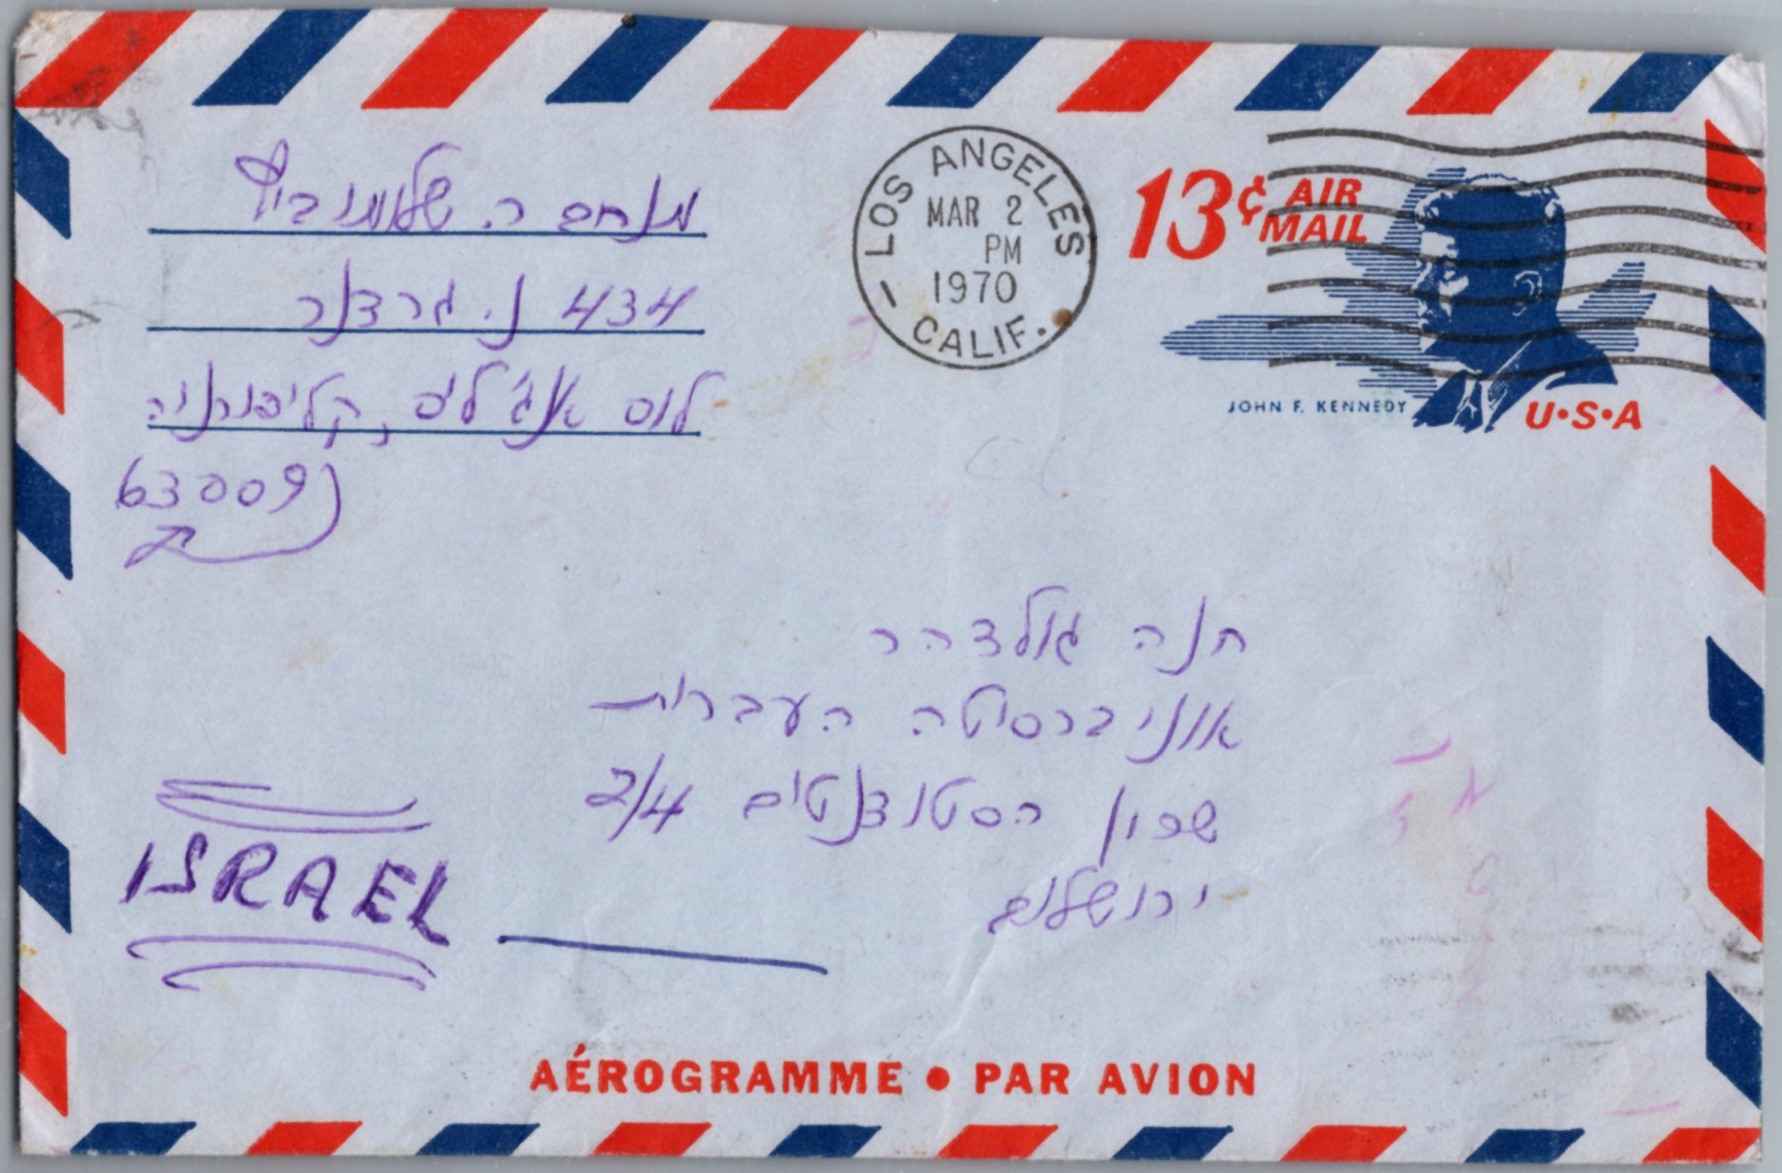 מנחם ה. שלומוביץ
434 נ. גרדנר
לוס אנג'לס, קליפורניה
63009
LOS ANGELES
MAR 2
PM
1970
CALIF.
13¢ AIR
MAIL
JOHN F. KENNEDY
U·S·A
חנה גולדהר
אוניברסיטה העברית
שכון הסטודנטים 2/4
ירושלים
ISRAEL
AÉROGRAMME • PAR AVION